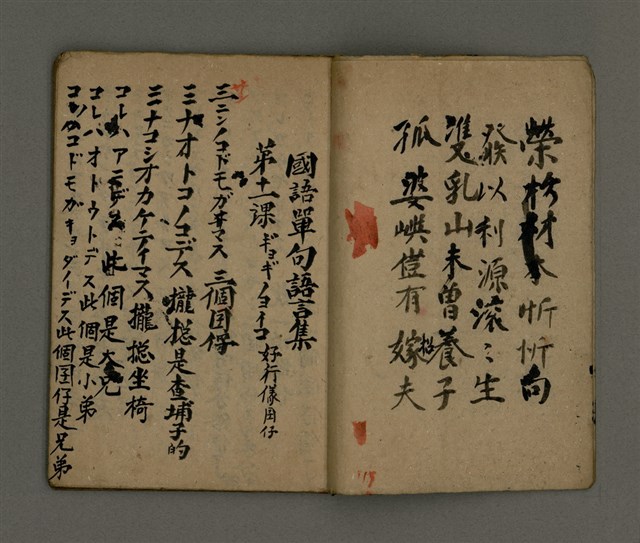 榮於材本忻忻向
發以利源滾々生
雙乳山未曾養子
孤婆嶼豈有嫁招夫
國語單句語言集
第十一課 ギョギノヨイコ 好行儀囝仔
三ニンノコドモガヰマス 三個囝仔
ミナオトコノコデス 攏總是查埔子的
ミナコシオカケテイマス 攏總坐椅
コレハアニデス 此個是大兄
コレハオトウトデス 此個是小弟
コノコドモガキョダイデス 此個囝仔是兄弟